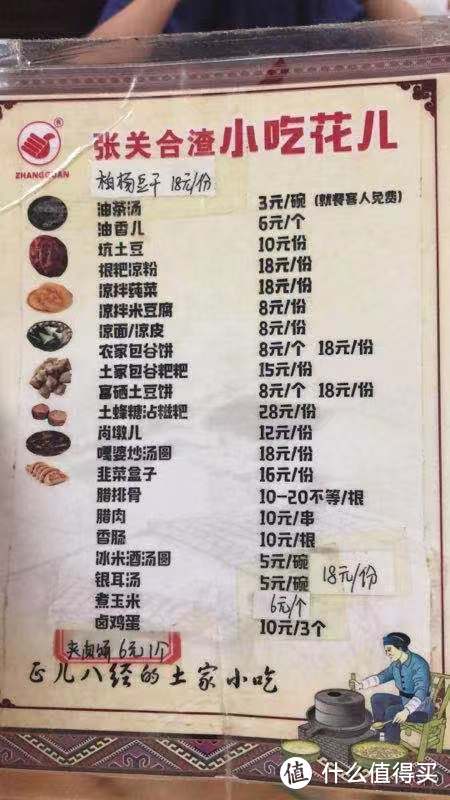 张关合渣小吃花儿
ZHANGGUAN
柏杨豆干 18元/份
油茶汤 3元/碗 (就餐客人免费)
油香儿 6元/个
炕土豆 10元份
根粑凉粉 18元/份
凉拌莼菜 18元/份
凉拌米豆腐 8元/份
凉面/凉皮 8元/份
农家包谷饼 8元/个 18元/份
土家包谷粑粑 15元/份
富硒土豆饼 8元/个 18元/份
土蜂糖沾糍粑 28元/份
肖墩儿 12元/份
嘎婆炒汤圆 18元/份
韭菜盒子 16元/份
腊排骨 10-20不等/根
腊肉 10元/串
香肠 10元/根
冰米酒汤圆 5元/碗
银耳汤 5元/碗 18元/份
煮玉米 6元/个
卤鸡蛋 10元/3个
6元1个
正儿八经的土家小吃
值 什么值得买